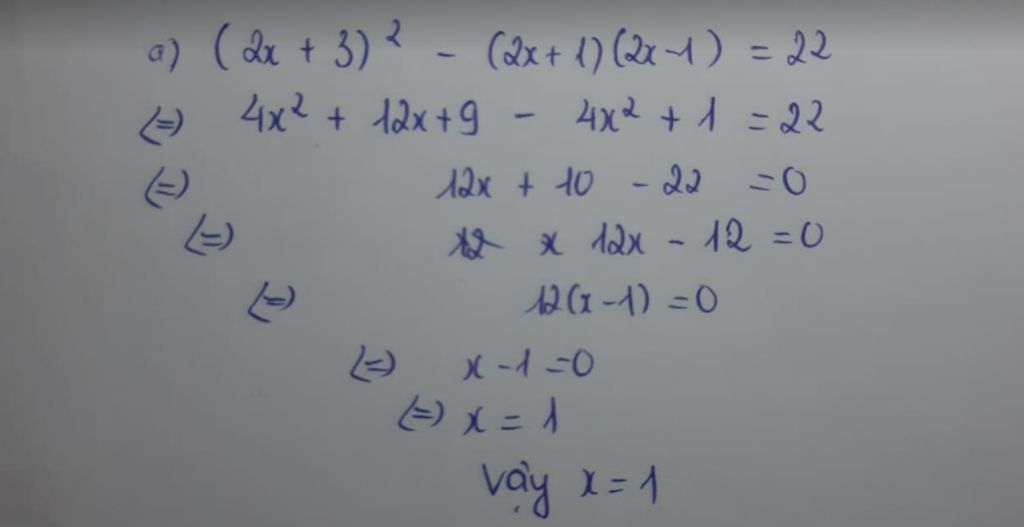 a) (2x + 3)² - (2x+1)(2x-1) = 22
(=) 4x² + 12x+9 - 4x² + 1 = 22
(=) 12x + 10 - 22 = 0
(=) 12 x 12x - 12 = 0
(=) 12(x-1) = 0
(=) x - 1 = 0
(=) x = 1
Vậy x = 1